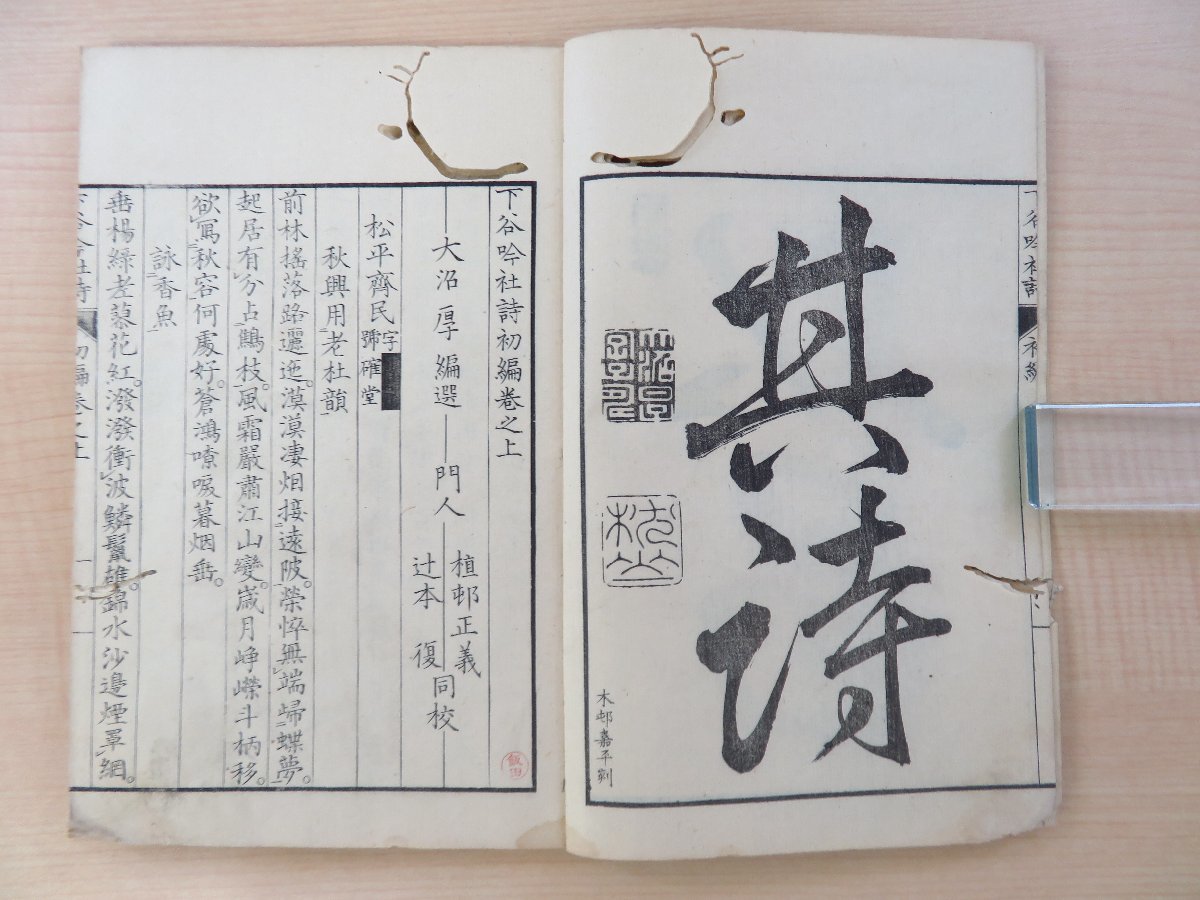 其詩
木邨嘉平刻
下谷吟社詩初編卷之上
大沼厚編選 門人 植邨正義 辻本復 同校
松平齊民 字 號確堂
秋興用老杜韻
前林搖落路邐迤。漠漠凄烟接遠陂。榮悴無端歸蝶夢。
起居有分占鷦枝。風霜嚴肅江山變。歲月崢嶸斗柄移。
欲寫秋容何處好。蒼鴻嘹唳暮烟垂。
詠香魚
垂楊綠老蓼花紅。潑潑衝波鱗鬣雄。錦水沙邊煙罩網。
飯田